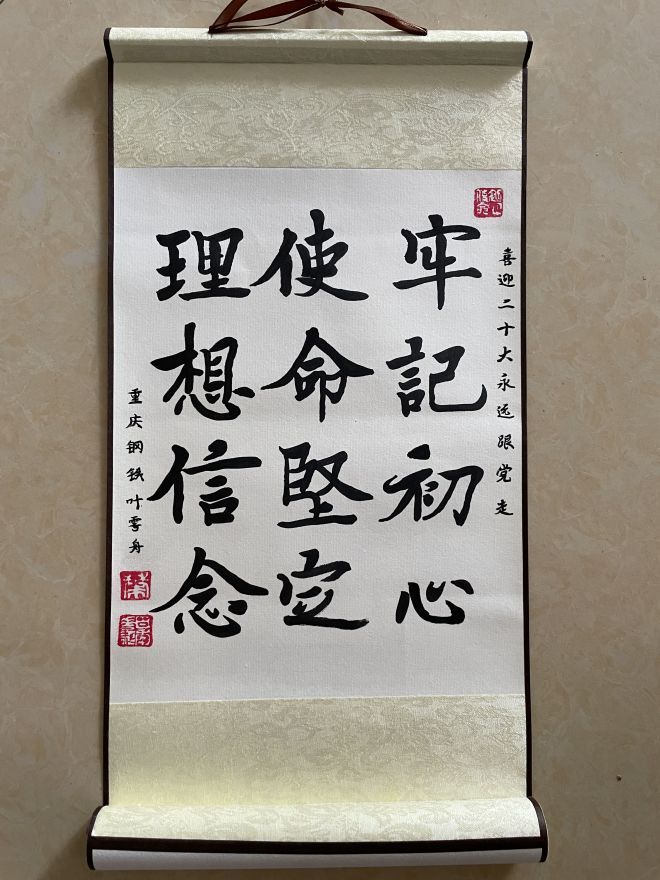 喜迎二十大永远跟党走
牢記初心
使命堅定
理想信念
重庆钢铁叶雪舟